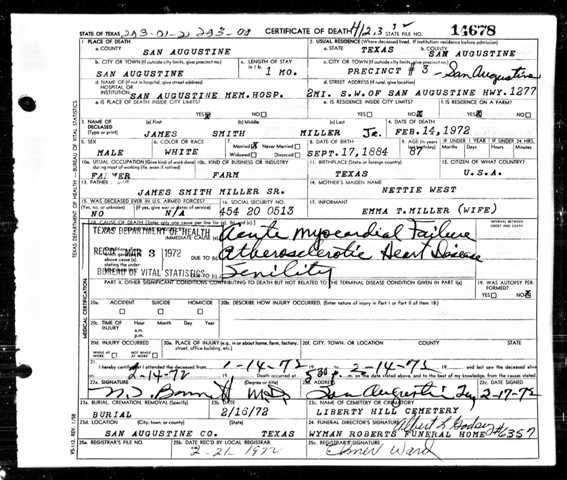 STATE OF TEXAS
CERTIFICATE OF DEATH
STATE FILE NO. 14678
1. PLACE OF DEATH
2. USUAL RESIDENCE (Where deceased lived. If institution: residence before admission)
a. COUNTY SAN AUGUSTINE
a. STATE TEXAS
b. COUNTY SAN AUGUSTINE
b. CITY OR TOWN (If outside city limits, give precinct no.) SAN AUGUSTINE
c. LENGTH OF STAY in 1 b. 1 MO.
c. CITY OR TOWN (If outside city limits, give precinct no.) PRECINCT #3 - San Augustine
d. NAME OF (If not in hospital, give street address) HOSPITAL OR INSTITUTION SAN AUGUSTINE MEM.HOSP.
d. STREET ADDRESS (If rural, give location) 2MI. S.W.OF SAN AUGUSTINE HWY.1277
e. IS PLACE OF DEATH INSIDE CITY LIMITS?
e. IS RESIDENCE INSIDE CITY LIMITS?
f. IS RESIDENCE ON A FARM?
YES NO
YES NO
YES NO
3. NAME OF DECEASED (Type or print)
(a) First JAMES
(b) Middle SMITH
(c) Last MILLER Jr.
4. DATE OF DEATH FEB.14,1972
5. SEX MALE
6. COLOR OR RACE WHITE
7. Married Never Married
Widowed Divorced
8. DATE OF BIRTH SEPT.17,1884
9. AGE (In years last birthday) 87
IF UNDER 1 YEAR Months Days
IF UNDER 24 HRS. Hours Min.
10a. USUAL OCCUPATION (Give kind of work done during most of working life, even if retired) FARMER
10b. KIND OF BUSINESS OR INDUSTRY FARM
11. BIRTHPLACE (State or foreign country) TEXAS
12. CITIZEN OF WHAT COUNTRY? U.S.A.
13. FATHER'S NAME JAMES SMITH MILLER SR.
14. MOTHER'S MAIDEN NAME NETTIE WEST
15. WAS DECEASED EVER IN U.S. ARMED FORCES? NO N/A
16. SOCIAL SECURITY NO. 454 20 0513
17. INFORMANT EMMA T.MILLER (WIFE)
18. CAUSE OF DEATH (Enter only one cause per line for (a), (b), and (c).)
INTERVAL BETWEEN ONSET AND DEATH
TEXAS DEPARTMENT OF HEALTH
IMMEDIATE CAUSE (a) Acute Myocardial Failure
REC'D MAR 3 1972
DUE TO (b) Atherosclerotic Heart Disease
BUREAU OF VITAL STATISTICS
DUE TO (c) Senility
PART II. OTHER SIGNIFICANT CONDITIONS CONTRIBUTING TO DEATH BUT NOT RELATED TO THE TERMINAL DISEASE CONDITION GIVEN IN PART I (a)
19. WAS AUTOPSY PERFORMED?
YES NO
20a. ACCIDENT SUICIDE HOMICIDE
20b. DESCRIBE HOW INJURY OCCURRED. (Enter nature of injury in Part I or Part II of item 18.)
20c. TIME OF INJURY Hour Month Day Year
a.m.
p.m.
20d. INJURY OCCURRED
WHILE AT WORK NOT WHILE AT WORK
20e. PLACE OF INJURY (e.g., in or about home, farm, factory, street, office building, etc.)
20f. CITY, TOWN, OR LOCATION COUNTY STATE
21. I hereby certify that I attended the deceased from 1-14-72 to 2-14-72 and last saw the deceased alive on
2-14-72 Death occurred at 5:30 p. m. on the date stated above, and to the best of my knowledge, from the causes stated.
22a. SIGNATURE (Degree or title) MD
22b. ADDRESS San Augustine, Tex
22c. DATE SIGNED 2-17-72
23a. BURIAL, CREMATION, REMOVAL (Specify) BURIAL
23b. DATE 2/16/72
23c. NAME OF CEMETERY OR CREMATORY LIBERTY HILL CEMETERY
23d. LOCATION (City, town, or county) (State) SAN AUGUSTINE CO. TEXAS
24. FUNERAL DIRECTOR'S SIGNATURE Albert L. Godsey #6357
WYMAN ROBERTS FUNERAL HOME
25a. REGISTRAR'S FILE NO.
25b. DATE REC'D BY LOCAL REGISTRAR 2-21-1972
25c. REGISTRAR'S SIGNATURE Elmer Ward
TEXAS DEPARTMENT OF HEALTH — BUREAU OF VITAL STATISTICS
MEDICAL CERTIFICATION
VS-112 REV. 1/58